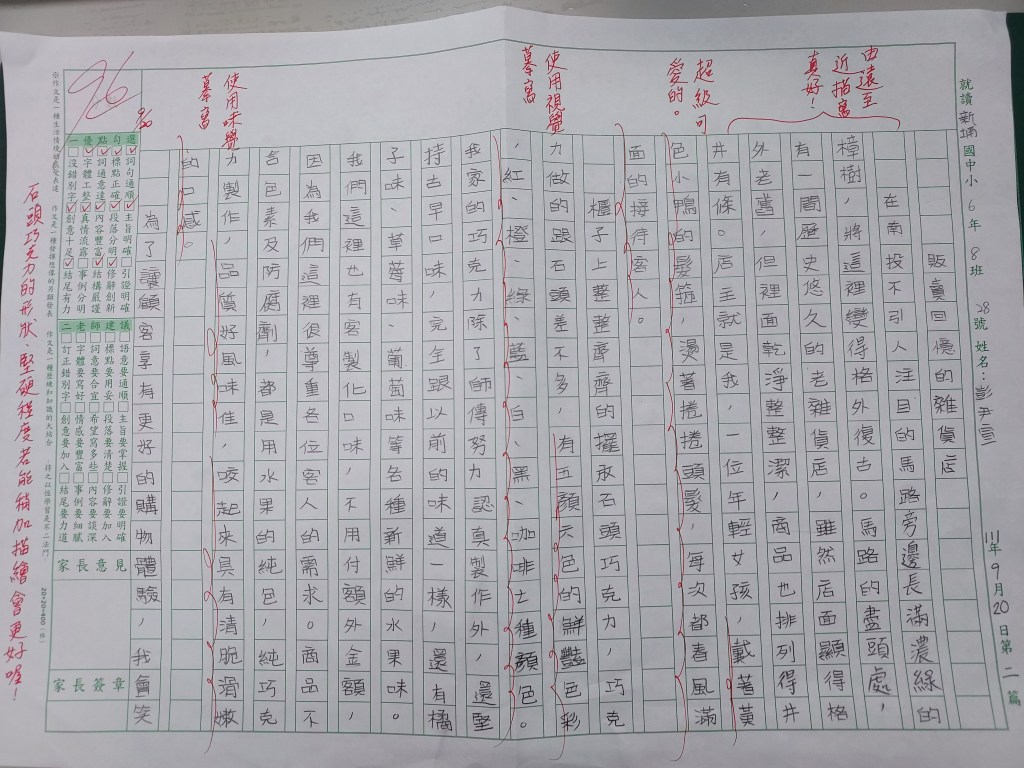 就讀 新埔 國中小 6 年 8 班 28 號 姓名：彭尹萱 111年 9 月 20 日 第 二 篇
由遠至近描寫真好！
超級可愛的。
使用視覺摹寫
使用味覺摹寫
販賣回憶的雜貨店
在南投不引人注目的馬路旁邊長滿濃綠的
樟樹，將這裡變得格外復古。馬路的盡頭處，
有一間歷史悠久的老雜貨店，雖然店面顯得格
外老舊，但裡面乾淨整潔，商品也排列得井
井有條。店主就是我，一位年輕女孩，戴著黃
色小鴨的髮箍，燙著捲捲頭髮，每次都春風滿
面的接待客人。
櫃子上整整齊齊的擺放石頭巧克力，巧克
力做的跟石頭差不多，有五顏六色的鮮豔色彩
，紅、橙、綠、藍、白、黑、咖啡七種顏色。
我家的巧克力除了師傅努力認真製作外，還堅
持古早口味，完全跟以前的味道一樣，還有橘
子味、草莓味、葡萄味等各種新鮮的水果味。
我們這裡也有客製化口味，不用付額外金額，
因為我們這裡很尊重各位客人的需求。商品不
含色素及防腐劑，都是用水果的純色，純巧克
力製作，品質好風味佳，咬起來具有清脆滑嫩
的口感。
為了讓顧客享有更好的購物體驗，我會笑
96
一優點勾選
詞句通順 主旨明確 引證明確
標點正確 段落分明 修辭創新
詞通意達 內容豐富 結構嚴謹
字體工整 真情流露 事例分明
沒錯別字 創意十足 結尾有力
二老師建議
語意要通順 主旨要掌握 引證要明確
標點要用妥 段落要清楚 修辭要加入
詞意要合宜 希望寫多些 內容要談深
字體要寫好 情感要豐富 事例要細膩
訂正錯別字 創意要加入 結尾要力道
家長意見
家長簽章
20×20=400（格）
石頭巧克力的形狀、堅硬程度若能稍加描繪會更好喔！